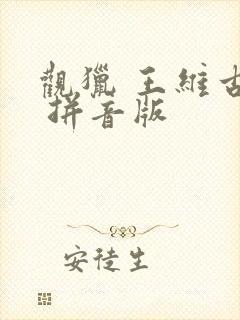 觀獵 王維古
拼音版
安徒生